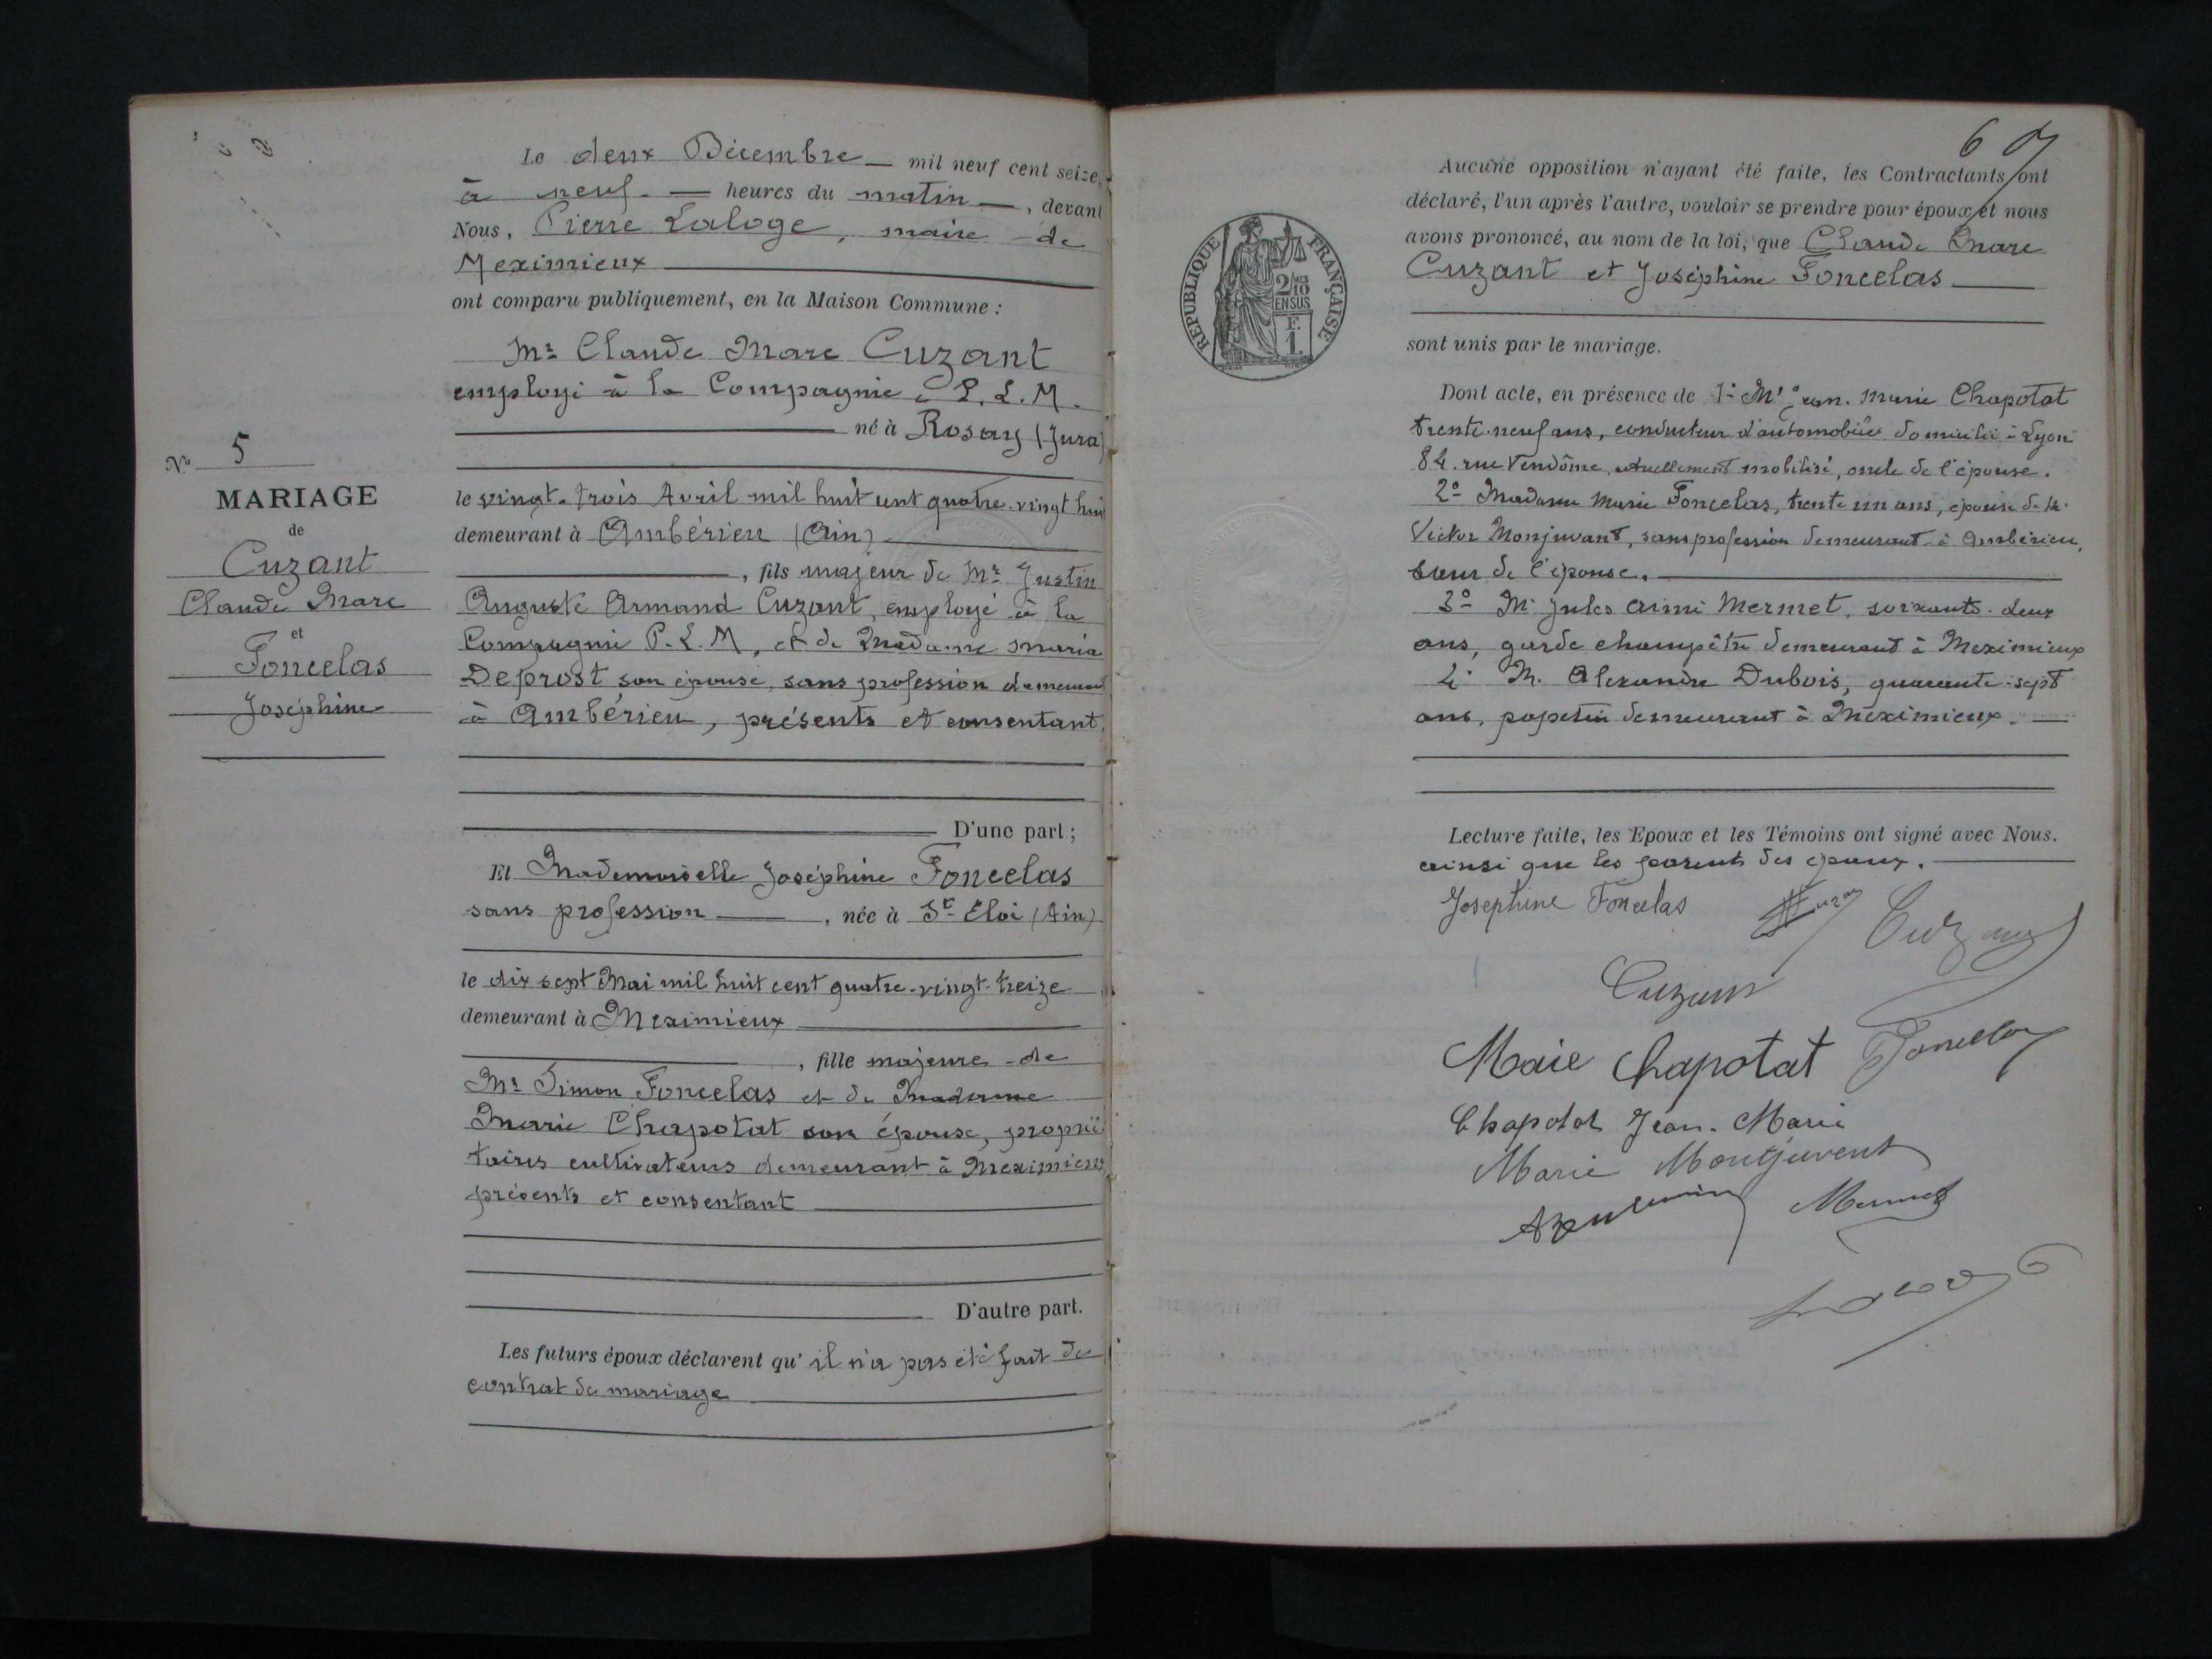 Le deux Décembre — mil neuf cent seize,
à neuf — heures du matin —, devant
Nous, Pierre Laloge, maire de
Meximieux
ont comparu publiquement, en la Maison Commune :
Mr Claude Marc Cuzant
employé à la Compagnie P. L. M.
né à Rosay (Jura)
le vingt-trois Avril mil huit cent quatre-vingt huit
demeurant à Ambérieu (Ain)
, fils majeur de Mr Justin
Auguste Armand Cuzant, employé à la
Compagnie P. L. M, et de Madame Maria
Deprost son épouse, sans profession demeurant
à Ambérieu, présents et consentant.
D'une part ;
Et Mademoiselle Joséphine Foncelas
sans profession —, née à St Eloi (Ain)
le dix sept Mai mil huit cent quatre-vingt-treize
demeurant à Meximieux
, fille majeure de
Mr Simon Foncelas et de Madame
Marie Chapotat son épouse, proprié
taires cultivateurs demeurant à Meximieux
présents et consentant
D'autre part.
Les futurs époux déclarent qu'il n'a pas été fait de
contrat de mariage
No 5
MARIAGE
de
Cuzant
Claude Marc
et
Foncelas
Joséphine
6
Aucune opposition n'ayant été faite, les Contractants ont
déclaré, l'un après l'autre, vouloir se prendre pour époux et nous
avons prononcé, au nom de la loi, que Claude Marc
Cuzant et Joséphine Foncelas
sont unis par le mariage.
REPUBLIQUE FRANÇAISE
2/10mes
EN SUS
F.
1.
Dont acte, en présence de 1° Mr Jean. Marie Chapotat
trente-neuf ans, conducteur d'automobile domicilié à Lyon
84. rue Vendôme, actuellement mobilisé, oncle de l'épouse.
2° Madame Marie Foncelas, trente un ans, épouse de M.
Victor Monjuvant, sans profession demeurant à Ambérieu,
sœur de l'épouse.
3° M. Jules Aimé Mermet, soixante-deux
ans, garde champêtre demeurant à Meximieux
4° M. Alexandre Dubois, quarante-sept
ans, demeurant à Meximieux.
Lecture faite, les Epoux et les Témoins ont signé avec Nous.
ainsi que les parents des époux.
Josephine Foncelas Cuzant
Cuzant
Marie Chapotat Foncelas
Chapotat Jean-Marie
Marie Montjuvent
Mermet